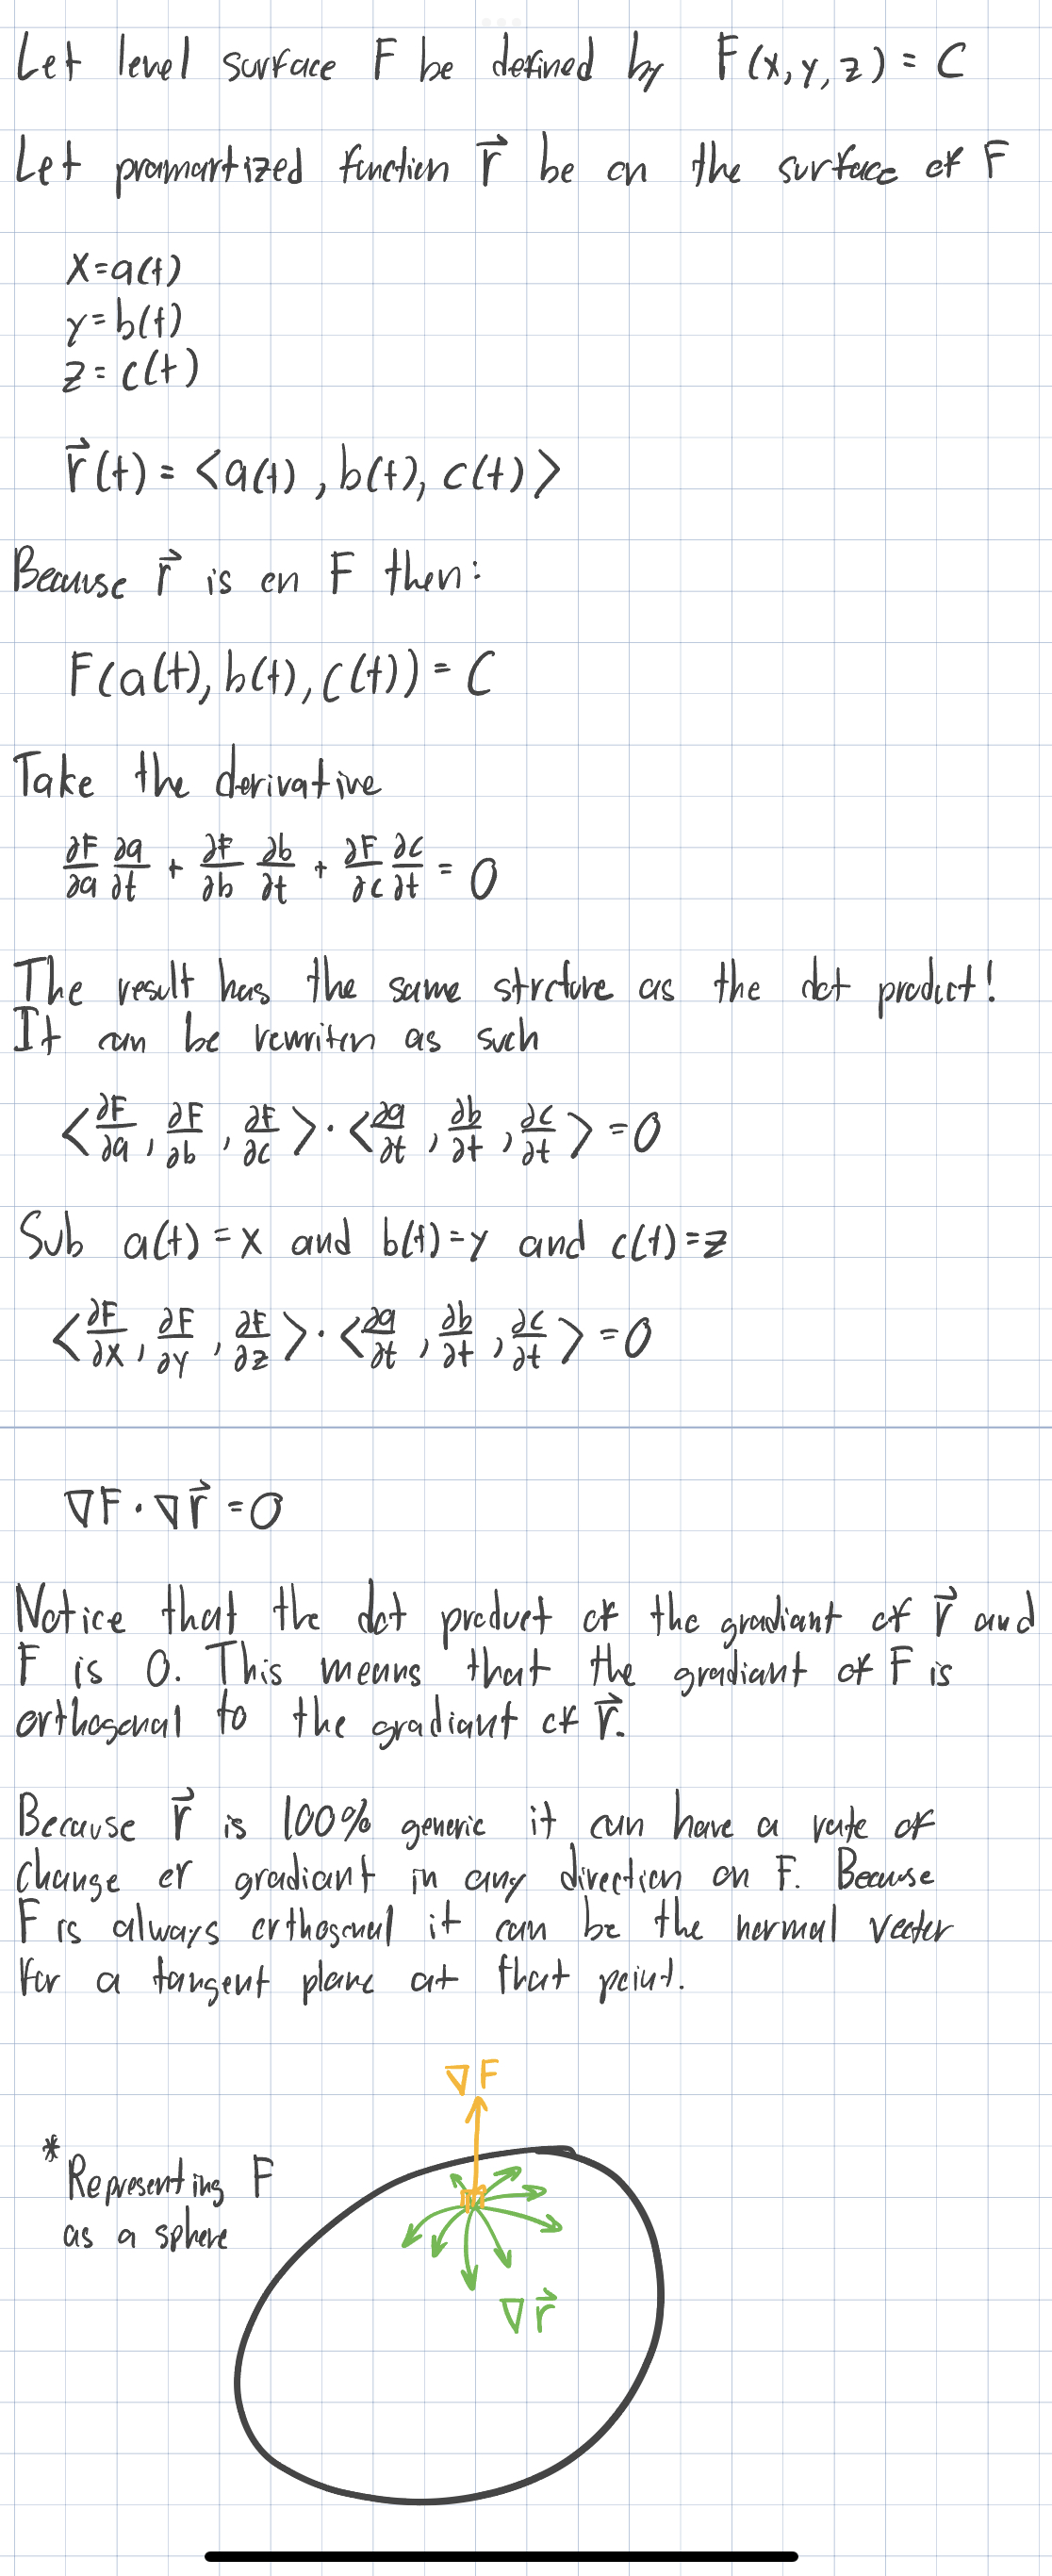 Let level surface F be defined by F(x,y,z) = C
Let pramartized function r⃗ be on the surface of F
x=a(t)
y=b(t)
z=c(t)
r⃗(t) = <a(t), b(t), c(t)>
Because r⃗ is on F then:
F(a(t), b(t), c(t)) = C
Take the derivative
∂F/∂a ∂a/∂t + ∂F/∂b ∂b/∂t + ∂F/∂c ∂c/∂t = 0
The result has the same strcture as the dot product!
It can be rewriten as such
<∂F/∂a, ∂F/∂b, ∂F/∂c> · <∂a/∂t, ∂b/∂t, ∂c/∂t> = 0
Sub a(t) = x and b(t) = y and c(t) = z
<∂F/∂x, ∂F/∂y, ∂F/∂z> · <∂a/∂t, ∂b/∂t, ∂c/∂t> = 0
∇F · ∇r⃗ = 0
Notice that the dot product of the gradiant of r⃗ and
F is 0. This means that the gradiant of F is
orthogonal to the gradiant of r⃗.
Because r⃗ is 100% generic it can have a rate of
change or gradiant in any direction on F. Because
F is always orthogonal it can be the normal vector
for a tangent plane at that point.
∇F
* Representing F
as a sphere
∇r⃗